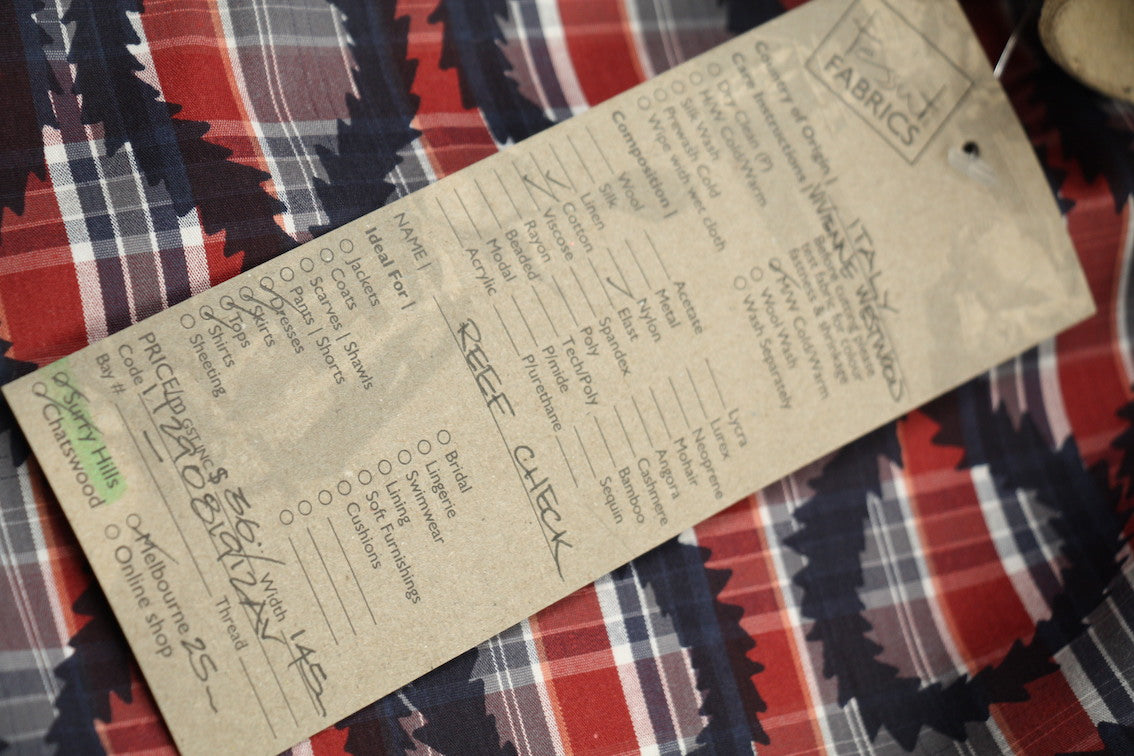 The Fabric
FABRICS
Country of Origin | ITALY
VIVIENNE WESTWOOD
Care Instructions |
Before cutting please test fabric for colour fastness & shrinkage
Dry Clean (P)
H/W Cold/Warm
Silk Wash
Prewash Cold
Wipe with wet cloth
M/W Cold/Warm
Wool Wash
Wash Separately
Composition |
Wool
Silk
Linen
Cotton
Viscose
Rayon
Beaded
Modal
Acrylic
Acetate
Metal
Nylon
Elast
Spandex
Poly
Tech/Poly
P/mide
P/urethane
Lycra
Lurex
Neoprene
Mohair
Angora
Cashmere
Bamboo
Sequin
NAME | REEF CHECK
Ideal For |
Jackets
Coats
Scarves | Shawls
Pants | Shorts
Dresses
Skirts
Tops
Shirts
Sheeting
Bridal
Lingerie
Swimwear
Lining
Soft Furnishings
Cushions
PRICE/m GST INC $ 36.- Width 145
Code |
Bay #
Thread
Surry Hills
Chatswood
Melbourne 25
Online shop